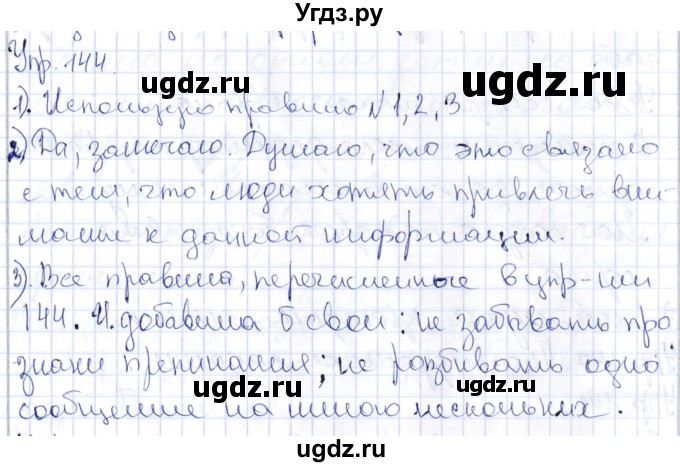 Угдз.ру
Упр. 144.
ugdz.ru ugdz.ru
1). Использую правило № 1, 2, 3
2) Да, замечаю. Думаю, что это связано
с тем, что люди хотять привлечь вни-
мание к данной информации.
ugdz.ru ugdz.ru
3). Все правила, перечисленные в упр-нии
144. И добавила б свои: не забывать про
ugdz.ru ugdz.ru
знаки препинания; не розбивать одно
сообщение на много нескольких.
ugdz.ru